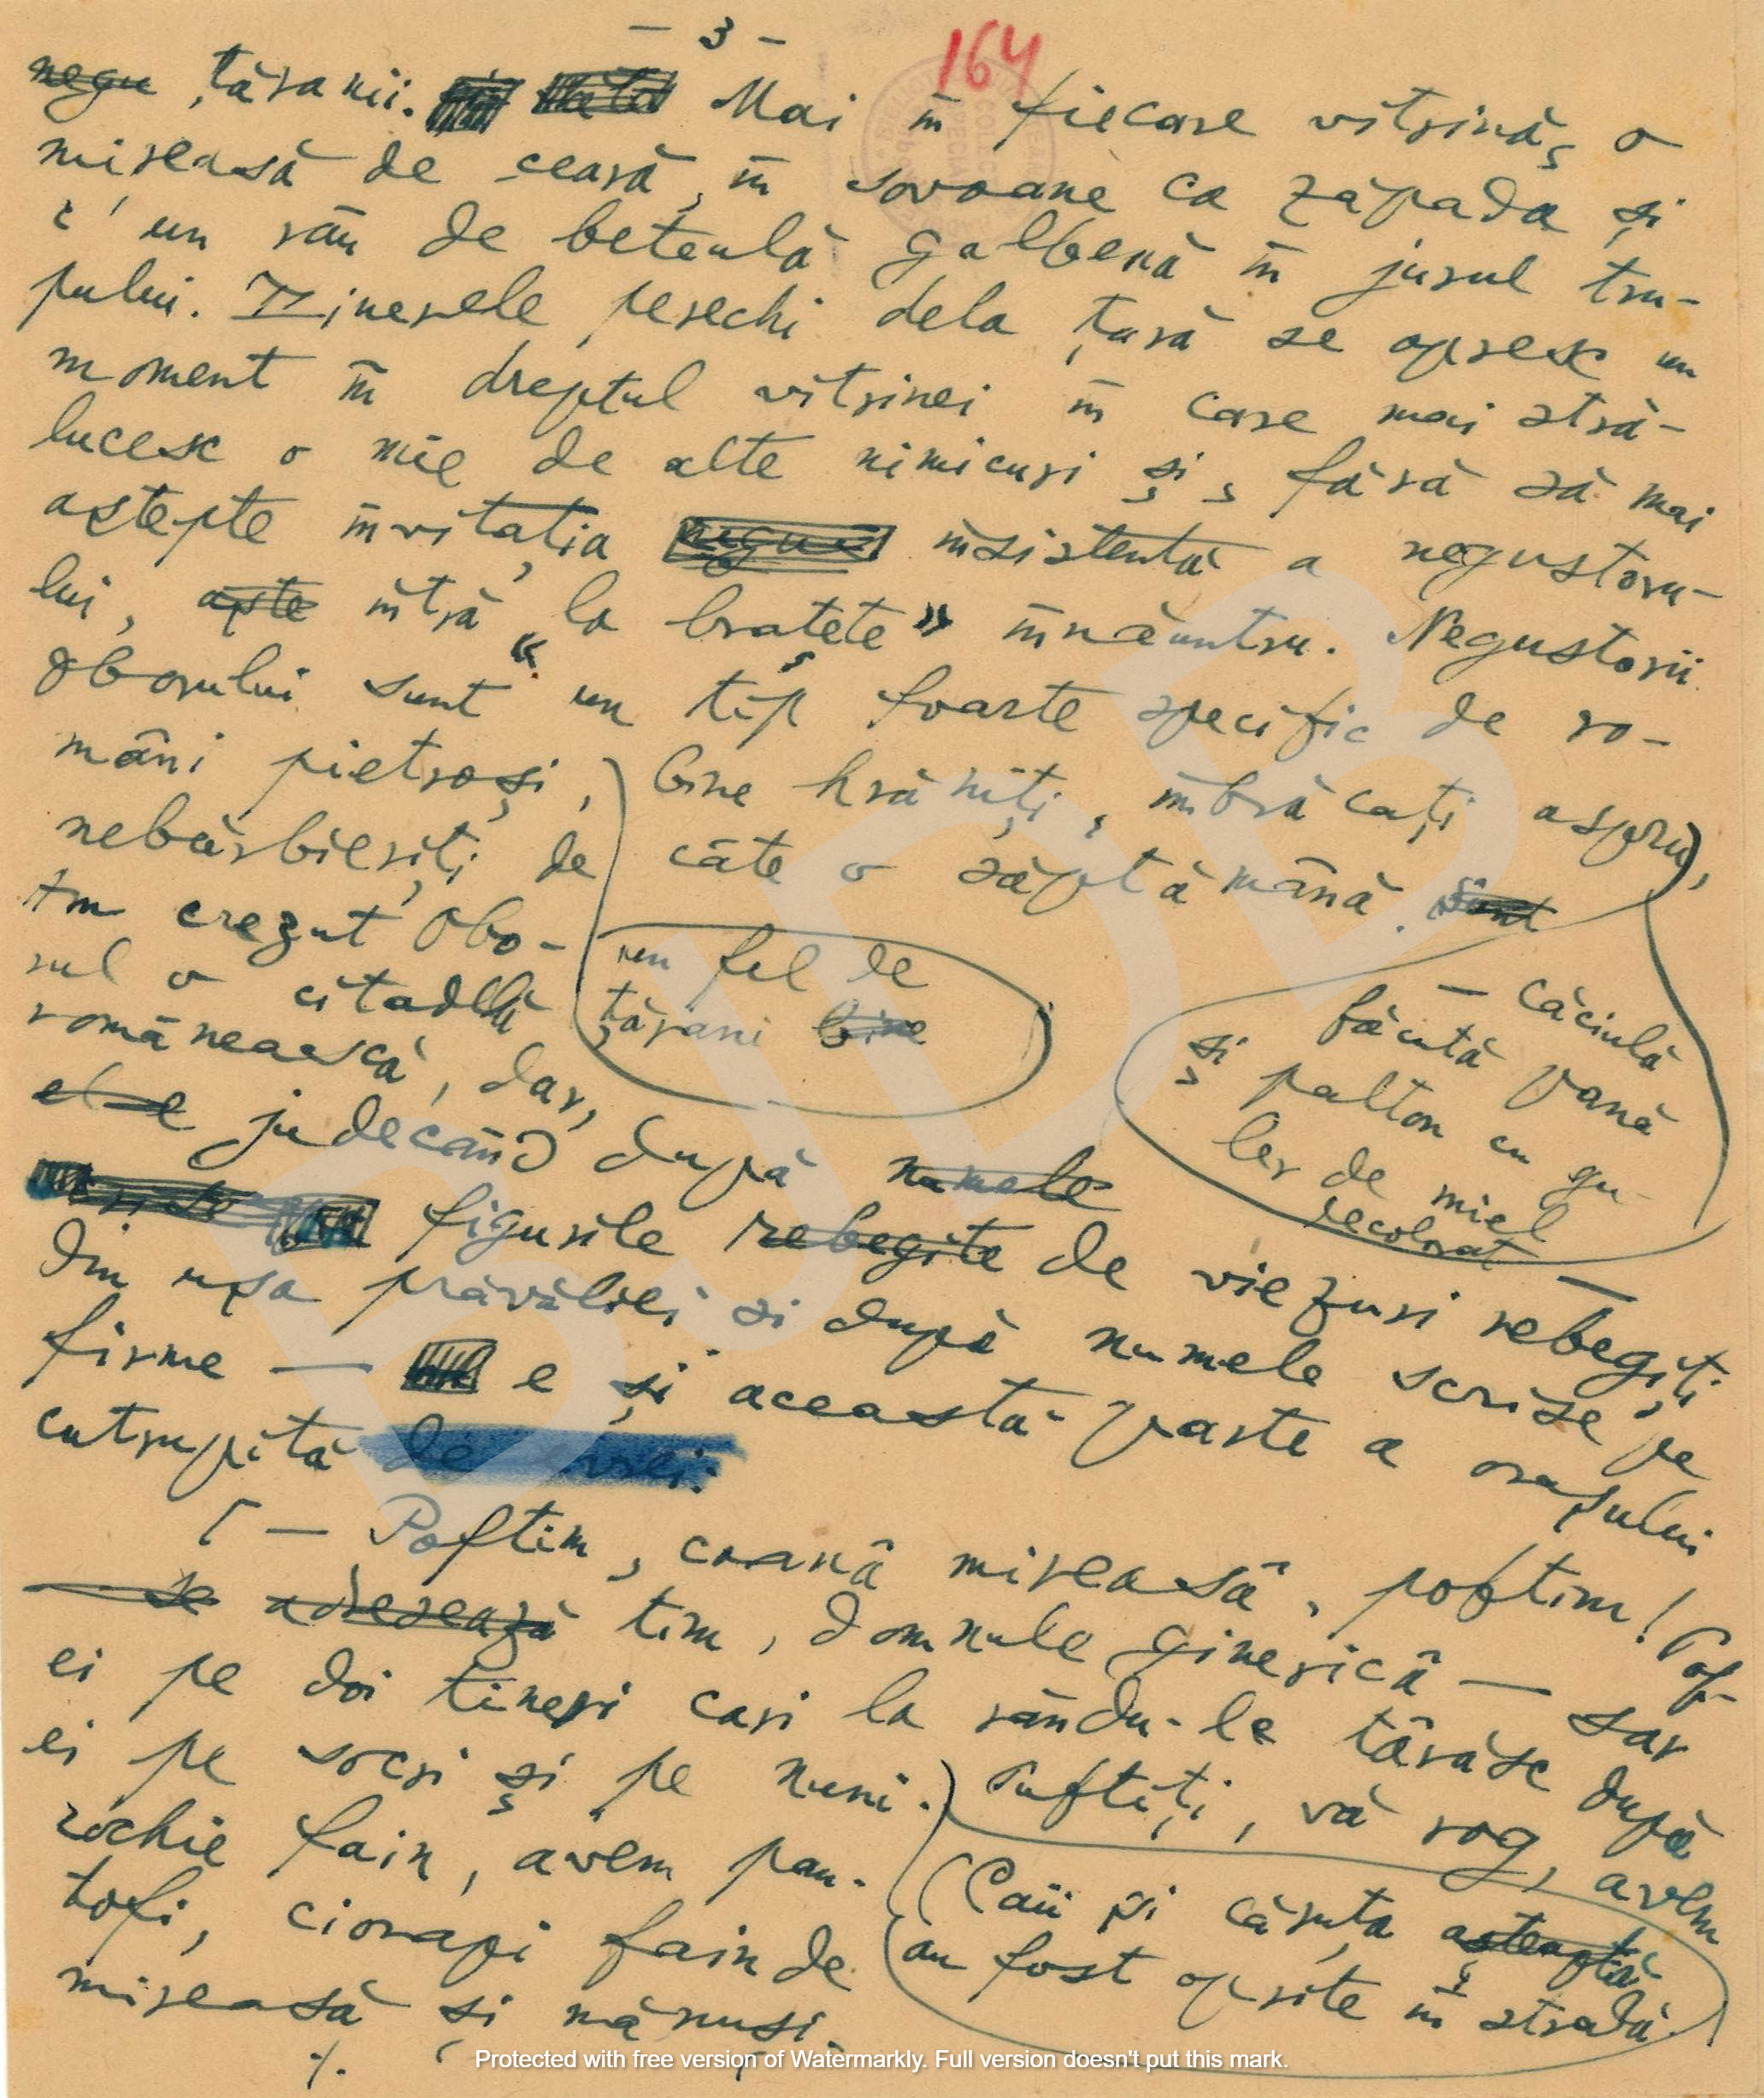 — 3 —
164
negu țăranii. Mai în fiecare vitrină, o
mireasă de ceară, în voroane ca zăpada și
c'un râu de beteală galbenă în jurul tru-
pului. Tinerele perechi dela țară se opresc un
moment în dreptul vitrinei în care mai stră-
lucesc o mie de alte nimicuri și, fără să mai
aștepte invitația insistentă a negustoru-
lui, aște intră „la brațete” înnăuntru. Negustorii
Oborului sunt un tip foarte specific de ro-
mâni pietroși, bine hrăniți, îmbrăcați aspru,
nebărbieriți de câte o săptămână. Sunt
un fel de
țărani bine
— căciulă
făcută oană
și palton cu gu-
ler de miel
decolorat —
Am crezut Obo-
rul o citadelă
românească, dar,
judecând după numele
figurile rebegite de viezuri rebegiți
din ușa prăvăliei și după numele scrise pe
firme — e și această parte a orașului
cutropită de evrei.
— Poftim, coană mireasă, poftim! Pof-
se adresează tim, domnule ginerică — sar
ei pe doi tineri cari la rându-le târăsc după
ei pe socri și pe nuni. Puftiți, vă rog, avem
rochie fain, avem pan-
tofi, ciorapi fain de
mireasă și mănuși.
(Caii și căruța așteaptă
au fost oprite în stradă.)
./.
Protected with free version of Watermarkly. Full version doesn't put this mark.
BJDB